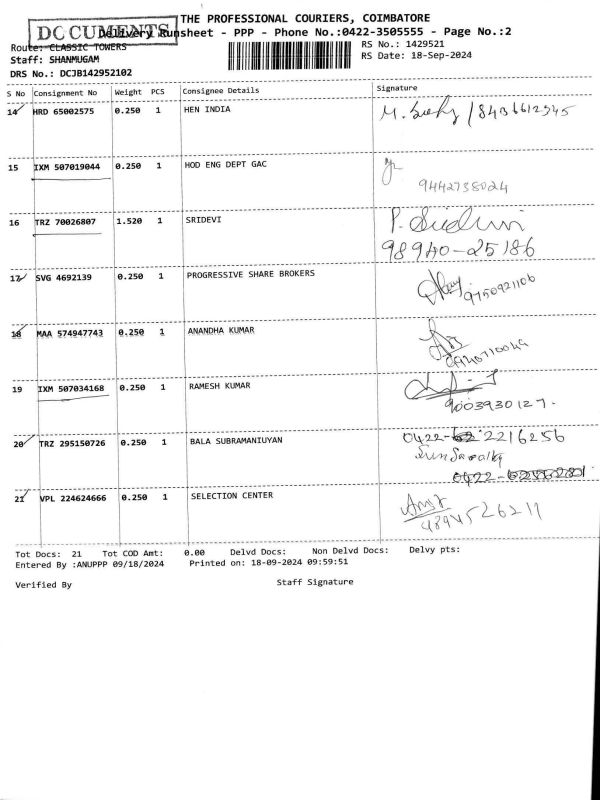 THE PROFESSIONAL COURIERS, COIMBATORE
DOCUMENTS
Delivery Runsheet - PPP - Phone No.:0422-3505555 - Page No.:2
Route: CLASSIC TOWERS
RS No.: 1429521
Staff: SHANMUGAM
RS Date: 18-Sep-2024
DRS No.: DCJB142952102
S No Consignment No Weight PCS Consignee Details Signature
14 HRD 65002575 0.250 1 HEN INDIA
15 IXM 507019044 0.250 1 HOD ENG DEPT GAC
9442738024
16 TRZ 70026807 1.520 1 SRIDEVI
98940-25186
17 SVG 4692139 0.250 1 PROGRESSIVE SHARE BROKERS
9750921106
18 MAA 574947743 0.250 1 ANANDHA KUMAR
19 IXM 507034168 0.250 1 RAMESH KUMAR
9003930127.
20 TRZ 295150726 0.250 1 BALA SUBRAMANIUYAN 0422- 2216256
0422-
21 VPL 224624666 0.250 1 SELECTION CENTER
Tot Docs: 21 Tot COD Amt: 0.00 Delvd Docs: Non Delvd Docs: Delvy pts:
Entered By :ANUPPP 09/18/2024 Printed on: 18-09-2024 09:59:51
Verified By Staff Signature